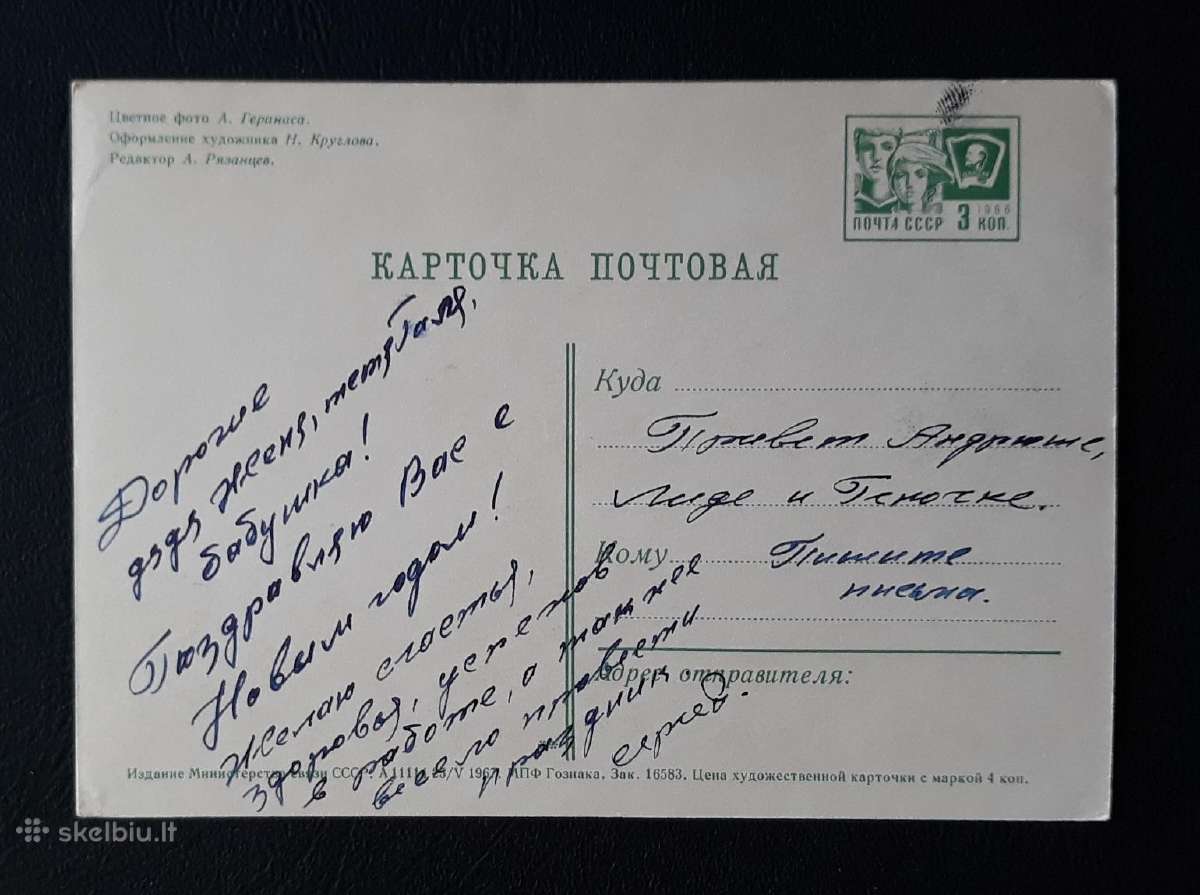 Цветное фото А. Геранаса.
Оформление художника Н. Круглова.
Редактор А. Рязанцев.
1966
ПОЧТА СССР 3 КОП.
КАРТОЧКА ПОЧТОВАЯ
Дорогие
дядя Женя, тетя Галя,
бабушка!
Поздравляю Вас с
Новым годом!
Желаю счастья,
здоровья, успехов
в работе, а также
весело провести
праздник.
Сергей.
Куда
Привет Андрюше,
Лиде и Геночке.
Кому Пишите
письма.
Адрес отправителя:
Издание Министерства связи СССР. 1967. МПФ Гознака. Зак. 16583. Цена художественной карточки с маркой 4 коп.
skelbiu.lt